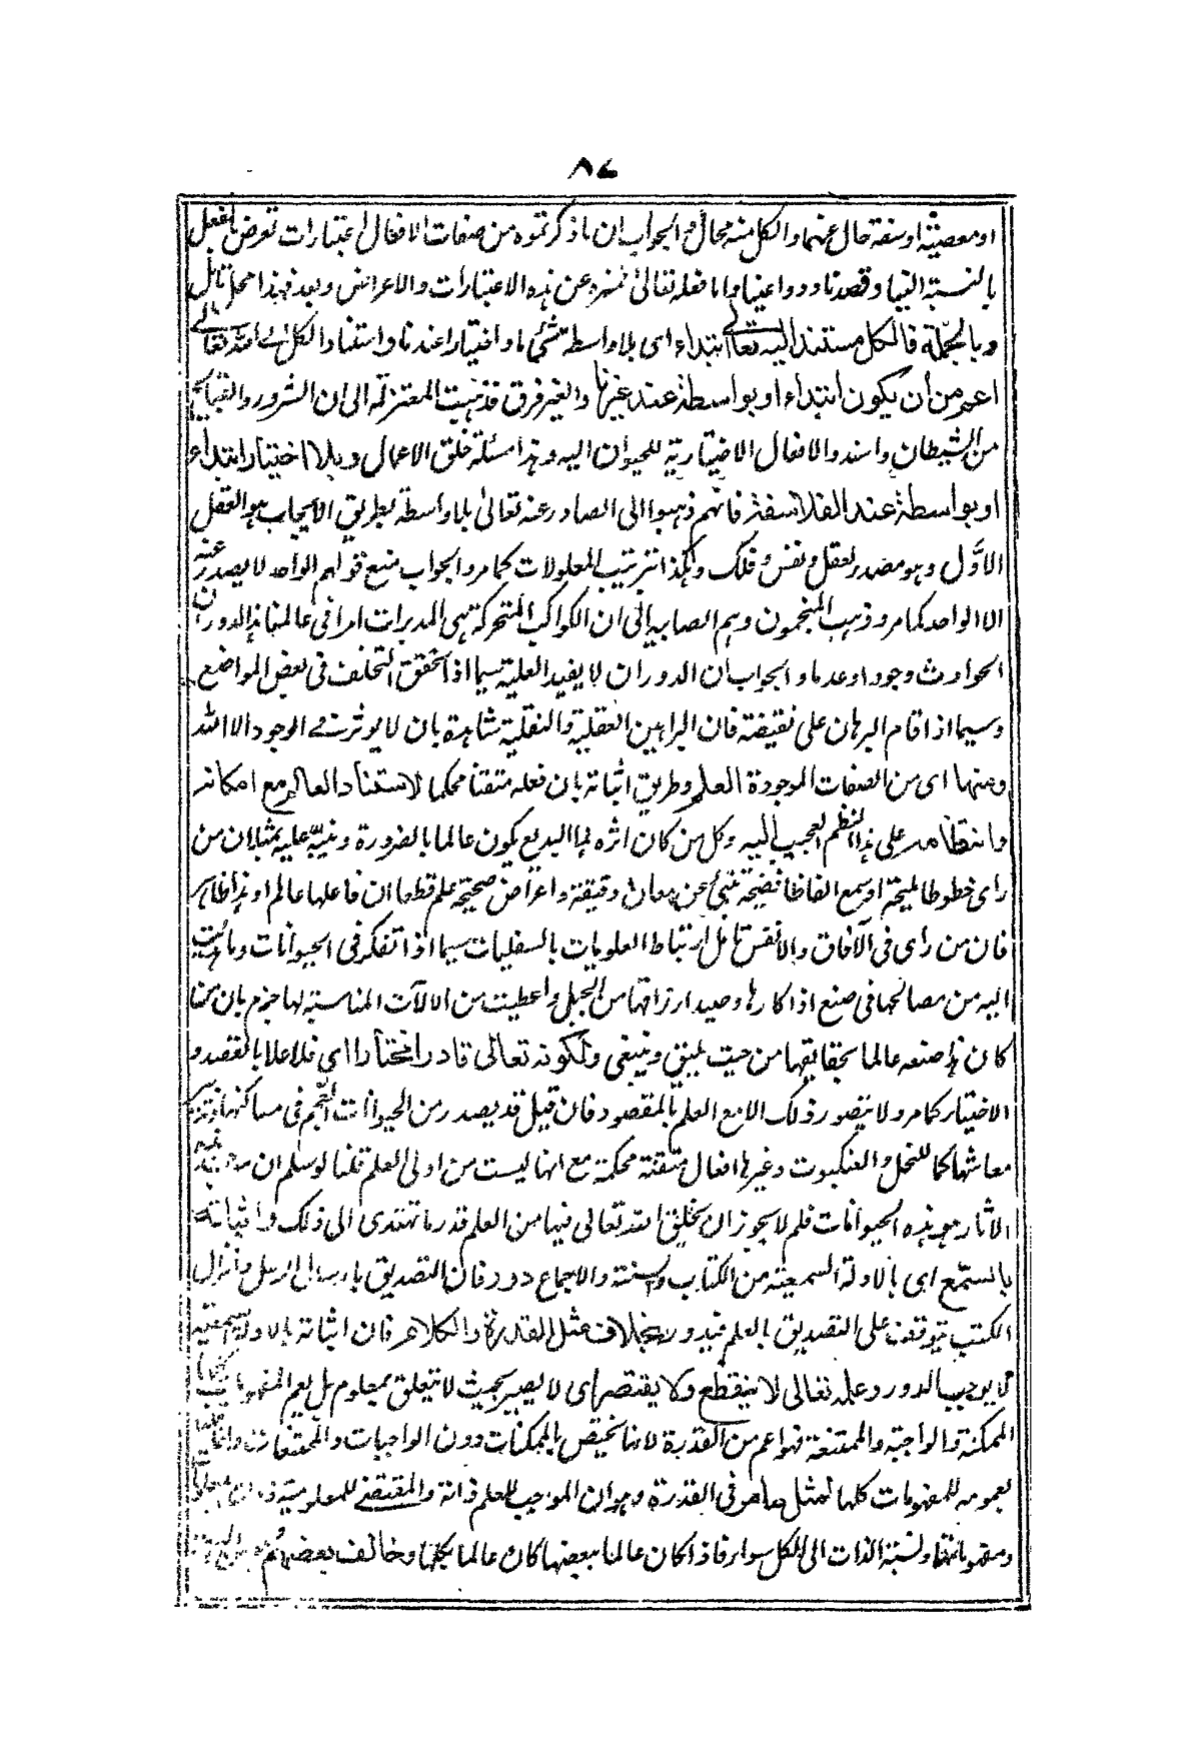 ٨٤
او معصيته او سفه خال عنهما والكل منه محال والجواب ان ما ذكرتموه من صفات الافعال اعتبارات تعرض لفعل
بالنسبة الينا وقصدنا ودواعينا واما فعله تعالى فمنزه عن هذه الاعتبارات والاعراض وبعد فهذا محل تأمل
وبالجملة فالكل مستند اليه تعالى ابتداء اى بلا واسطة شئ ما واختيارا عندنا واستناد الكل الى الله تعالى
اعم من أن يكون ابتداء او بواسطة عند غيرنا والغير فرق فذهبت المعتزلة الى ان الشرور والقبايح
من الشيطان واسندوا الافعال الاختيارية للحيوان اليه وهذا مسئلة خلق الاعمال وبلا اختيار ابتداء
او بواسطة عند الفلاسفة فانهم ذهبوا الى الصادر عنه تعالى بلا واسطة بطريق الايجاب هو العقل
الاوّل وهو مصدر لعقل ونفس وفلك وهكذا تترتب المعلولات كما مر والجواب منع قولهم الواحد لا يصدر عنه
الا الواحد كما مر وذهب المنجمون وهم الصابيه الى ان الكواكب المتحركة هى المدبرات امرا فى عالمنا هذا لدوران
الحوادث وجودا وعدما والجواب ان الدوران لا يفيد العلية سيما اذا تحقق التخلف فى بعض المواضع
وسيما اذا قام البرهان على نقيضه فان البراهين العقلية والنقلية شاهدة بان لا يوثر فى الوجود الا الله
ومنها اى من الصفات الموجودة العلم وطريق اثباته بان فعله متقنا محكما لاستناد العالم مع امكانه
وانتظامه على هذا النظم العجيب اليه وكل من كان اثره هذا البديع يكون عالما بالضرورة وينبّه عليه بمثل ان من
راى خطوطا مليحة او سمع الفاظا فصيحة تنبئ عن معان دقيقة واغراض صحيحة علم قطعا ان فاعلها عالم او هذا ظاهر
فان من راى فى الآفاق والانفس تامل ارتباط العلويات بالسفليات سيما اذا تفكر فى الحيوانات وما هديت
اليه من مصالحها فى صنع اذا كارها وصيد ارزاقها من الحيل واعطيت من الآلات المناسبة لها جزم بان من
كان هذا صنعه عالما بحقايقها من حيث يليق وينبغى ولكونه تعالى قادرا مختارا اى فاعلا بالقصد و
الاختيار كما مر ولا يتصور ذلك الا مع العلم بالمقصود فان قيل قد يصدر من الحيوانات العجم فى مساكنها وتدبير
معاشها كما للنحل والعنكبوت وغيرها افعال متقنة محكمة مع انها ليست من اولى العلم قلنا لو سلم ان موجد هذه
الآثار هو هذه الحيوانات فلم لا يجوز ان يخلق الله تعالى فيها من العلم قدر ما تهتدى الى ذلك واثباته
بالسمع اى بالادلة السمعية من الكتاب والسنة والاجماع دور فان التصديق بارسال الرسل وانزال
الكتب يتوقف على التصديق بالعلم فيدور بخلاف مثل القدرة والكلام فان اثباته بالادلة السمعية
لا يوجب الدور وعلمه تعالى لا ينقطع ولا يقتصر اى لا يصير بحيث لا يتعلق بمعلوم بل يعم المفهومات
الممكنة والواجبة والممتنعة فهو اعم من القدرة لانها تختص بالممكنات دون الواجبات والممتنعات وانما قلنا
بعمومه للمفهومات كلها لمثل ما هو فى القدرة وهو ان الموجب للعلم ذاته والمقتضى للمعلومية ذوات
ومفهوماتها ونسبة الذات الى الكل سواء فاذا كان عالما ببعضها كان عالما بكلها وخالف بعضهم